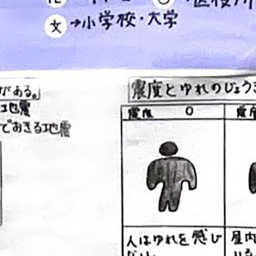 文→小学校・大学
がある。」
地震
でおきる地震
震度とゆれのじょう
震度 0
人はゆれを感じ
ない。
屋内